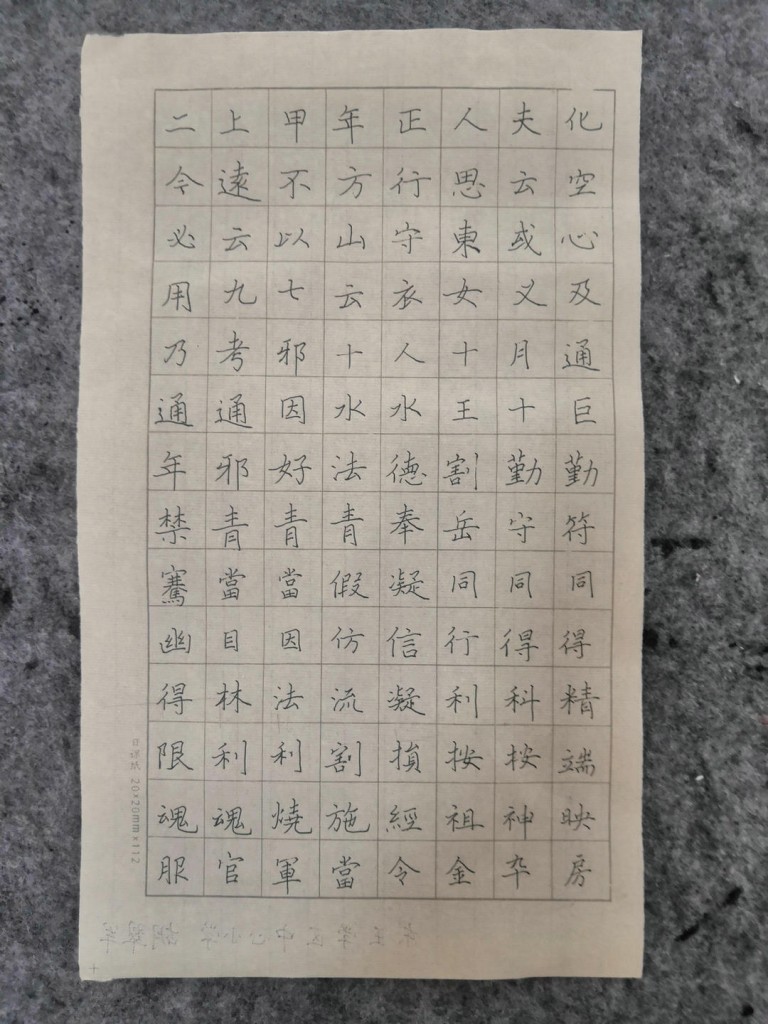 化空心及通巨勤符同得精端映房
夫云或义月十勤守同得科按神卆
人思東女十王割岳同行利按祖金
正行守衣人水德奉凝信凝損經令
年方山云十水法青假仿流割施當
甲不以七邪因好青當因法利燒軍
上遠云九考通邪青當目林利魂官
二令必用乃通年禁騫幽得限魂服
日课纸 20*20mm*112